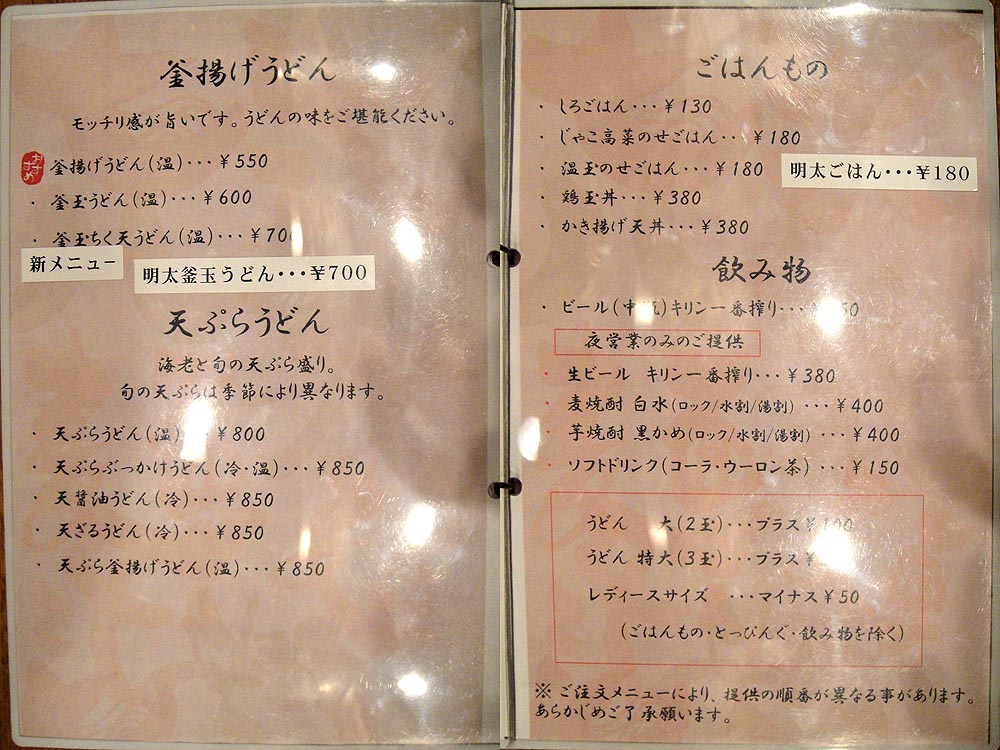 釜揚げうどん
モッチリ感が旨いです。うどんの味をご堪能ください。
おすすめ
釜揚げうどん(温)・・・¥550
・釜玉うどん(温)・・・¥600
・釜玉ちく天うどん(温)・・・¥700
新メニュー
明太釜玉うどん・・・¥700
天ぷらうどん
海老と旬の天ぷら盛り。
旬の天ぷらは季節により異なります。
・天ぷらうどん(温)・・・¥800
・天ぷらぶっかけうどん(冷・温)・・・¥850
・天醤油うどん(冷)・・・¥850
・天ざるうどん(冷)・・・¥850
・天ぷら釜揚げうどん(温)・・・¥850
ごはんもの
・しろごはん・・・¥130
・じゃこ高菜のせごはん・・・¥180
・温玉のせごはん・・・¥180
明太ごはん・・・¥180
・鶏玉丼・・・¥380
・かき揚げ天丼・・・¥380
飲み物
・ビール(中瓶)キリン一番搾り・・・
夜営業のみのご提供
・生ビール キリン一番搾り・・・¥380
・麦焼酎 白水(ロック/水割/湯割)・・・¥400
・芋焼酎 黒かめ(ロック/水割/湯割)・・・¥400
・ソフトドリンク(コーラ・ウーロン茶)・・・¥150
うどん 大(2玉)・・・プラス¥100
うどん 特大(3玉)・・・プラス¥
レディースサイズ ・・・マイナス¥50
(ごはんもの・とっぴんぐ・飲み物を除く)
※ご注文メニューにより、提供の順番が異なる事があります。
あらかじめご了承願います。